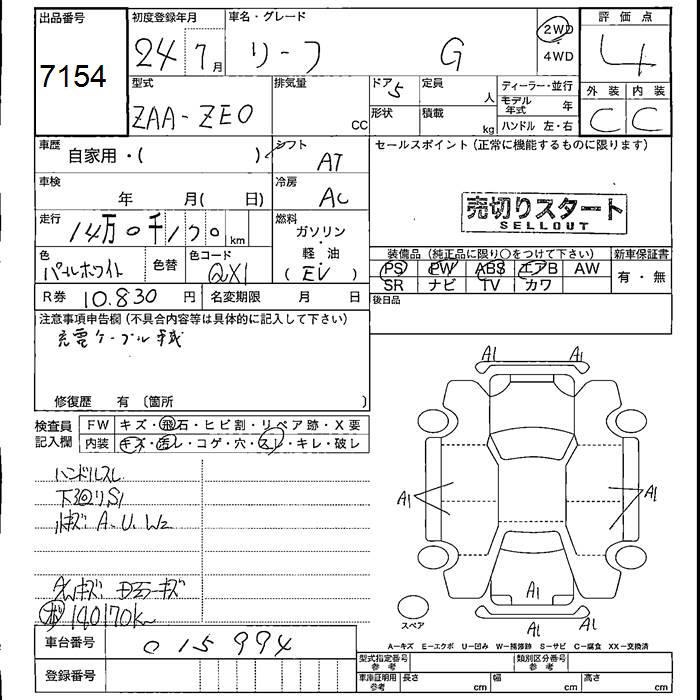 出品番号
7154
初度登録年月
24 7月
車名・グレード
リーフ G
2WD
・
4WD
評価点
4
外装 内装
C C
型式
ZAA-ZE0
排気量
CC
ドア 5
形状
定員
人
積載
kg
ディーラー・並行
モデル年式 年
ハンドル 左・右
車歴
自家用・( )
シフト
AT
セールスポイント(正常に機能するものに限ります)
売切りスタート
SELLOUT
車検
年 月( 日)
冷房
AC
走行
14万0千170km
燃料
ガソリン
・
軽・油
(EV)
色
パールホワイト
色替
色コード
QX1
装備品(純正品に限り○をつけて下さい)
PS PW ABS エアB AW
SR ナビ TV カワ
新車保証書
有・無
R券 10.830 円
名変期限 月 日
後日品
注意事項申告欄(不具合内容等は具体的に記入して下さい)
充電ケーブル
修復歴 有〔箇所 〕
検査員
記入欄
FW キズ・飛石・ヒビ割・リペア跡・X要
内装 キズ・汚レ・コゲ・穴・スレ・キレ・破レ
ハンドルスレ
下廻りS1
小キズ A.U.W2
140170k
車台番号
015994
登録番号
A1 A1
A1 A1
A1
A1 A1
スペア
A−キズ E−エクボ U−凹み W−補修跡 S−サビ C−腐食 XX−交換済
型式指定番号
参考
類別区分番号
参考
車庫証明用
参考
長さ cm
幅 cm
高さ cm